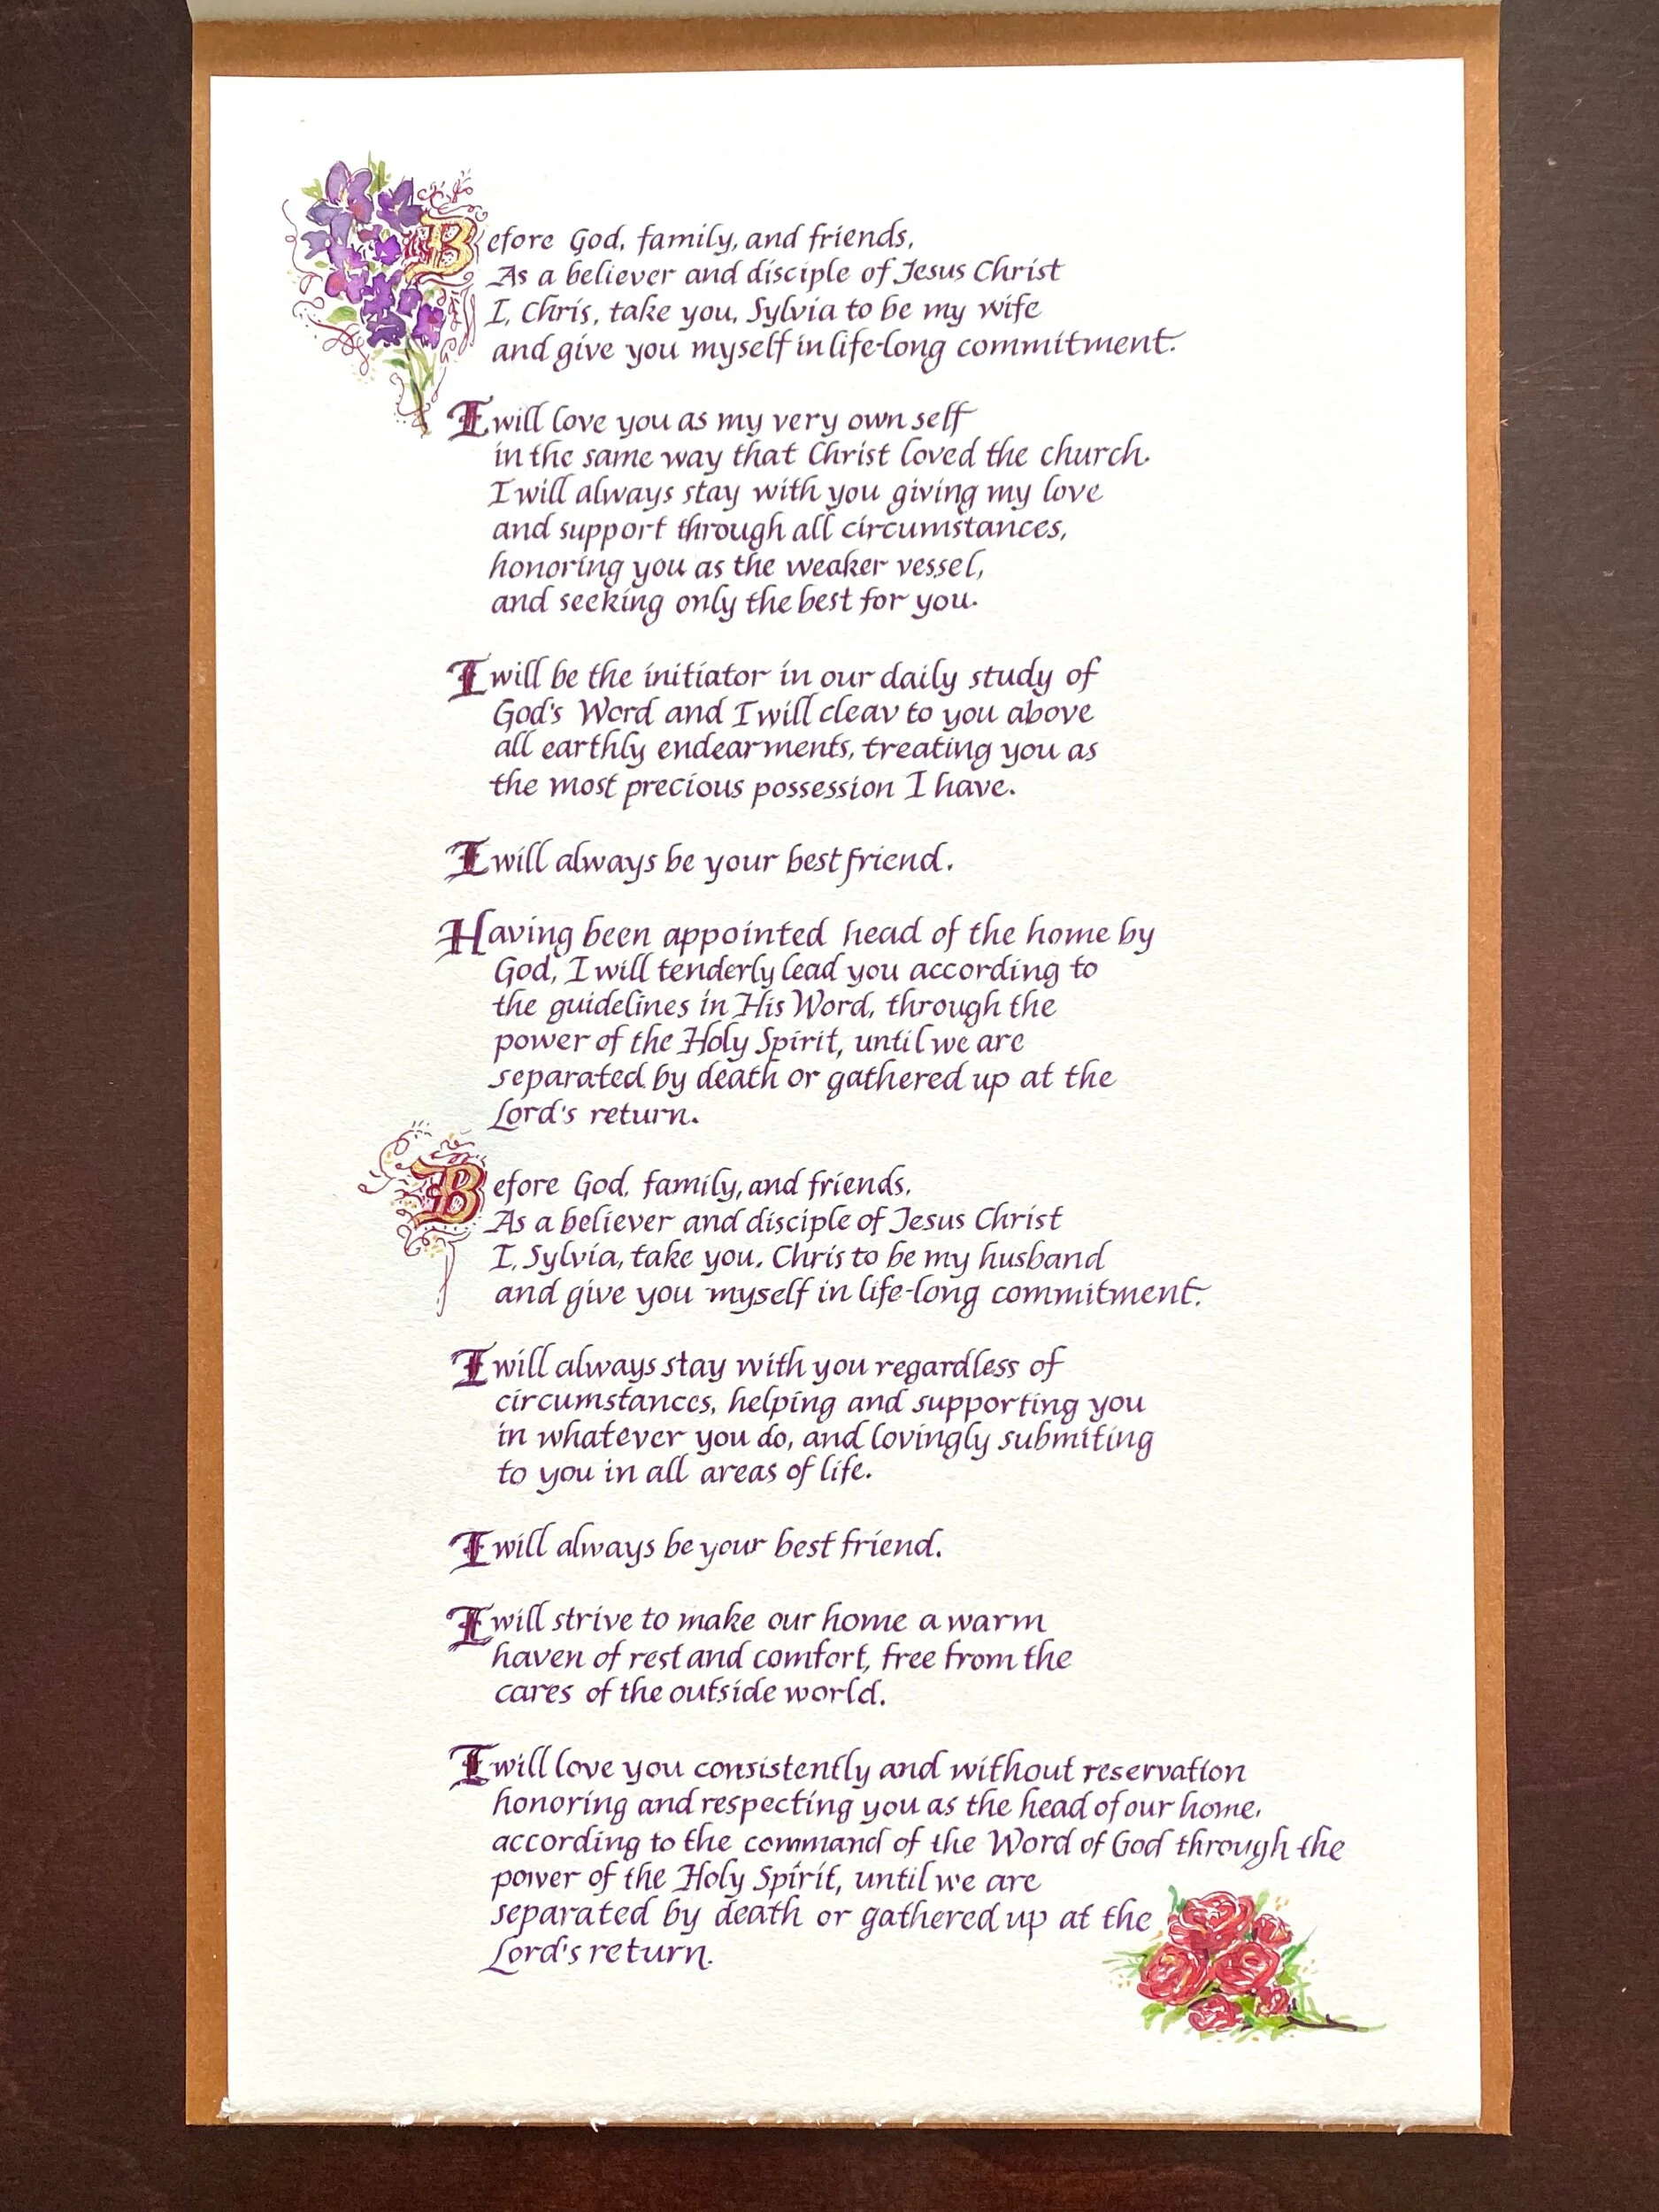 Before God, family, and friends,
As a believer and disciple of Jesus Christ
I, Chris, take you, Sylvia to be my wife
and give you myself in life-long commitment.
I will love you as my very own self
in the same way that Christ loved the church.
I will always stay with you giving my love
and support through all circumstances,
honoring you as the weaker vessel,
and seeking only the best for you.
I will be the initiator in our daily study of
God's Word and I will cleav to you above
all earthly endearments, treating you as
the most precious possession I have.
I will always be your best friend.
Having been appointed head of the home by
God, I will tenderly lead you according to
the guidelines in His Word, through the
power of the Holy Spirit, until we are
separated by death or gathered up at the
Lord's return.
Before God, family, and friends,
As a believer and disciple of Jesus Christ
I, Sylvia, take you, Chris to be my husband
and give you myself in life-long commitment.
I will always stay with you regardless of
circumstances, helping and supporting you
in whatever you do, and lovingly submiting
to you in all areas of life.
I will always be your best friend.
I will strive to make our home a warm
haven of rest and comfort, free from the
cares of the outside world.
I will love you consistently and without reservation
honoring and respecting you as the head of our home,
according to the command of the Word of God through the
power of the Holy Spirit, until we are
separated by death or gathered up at the
Lord's return.